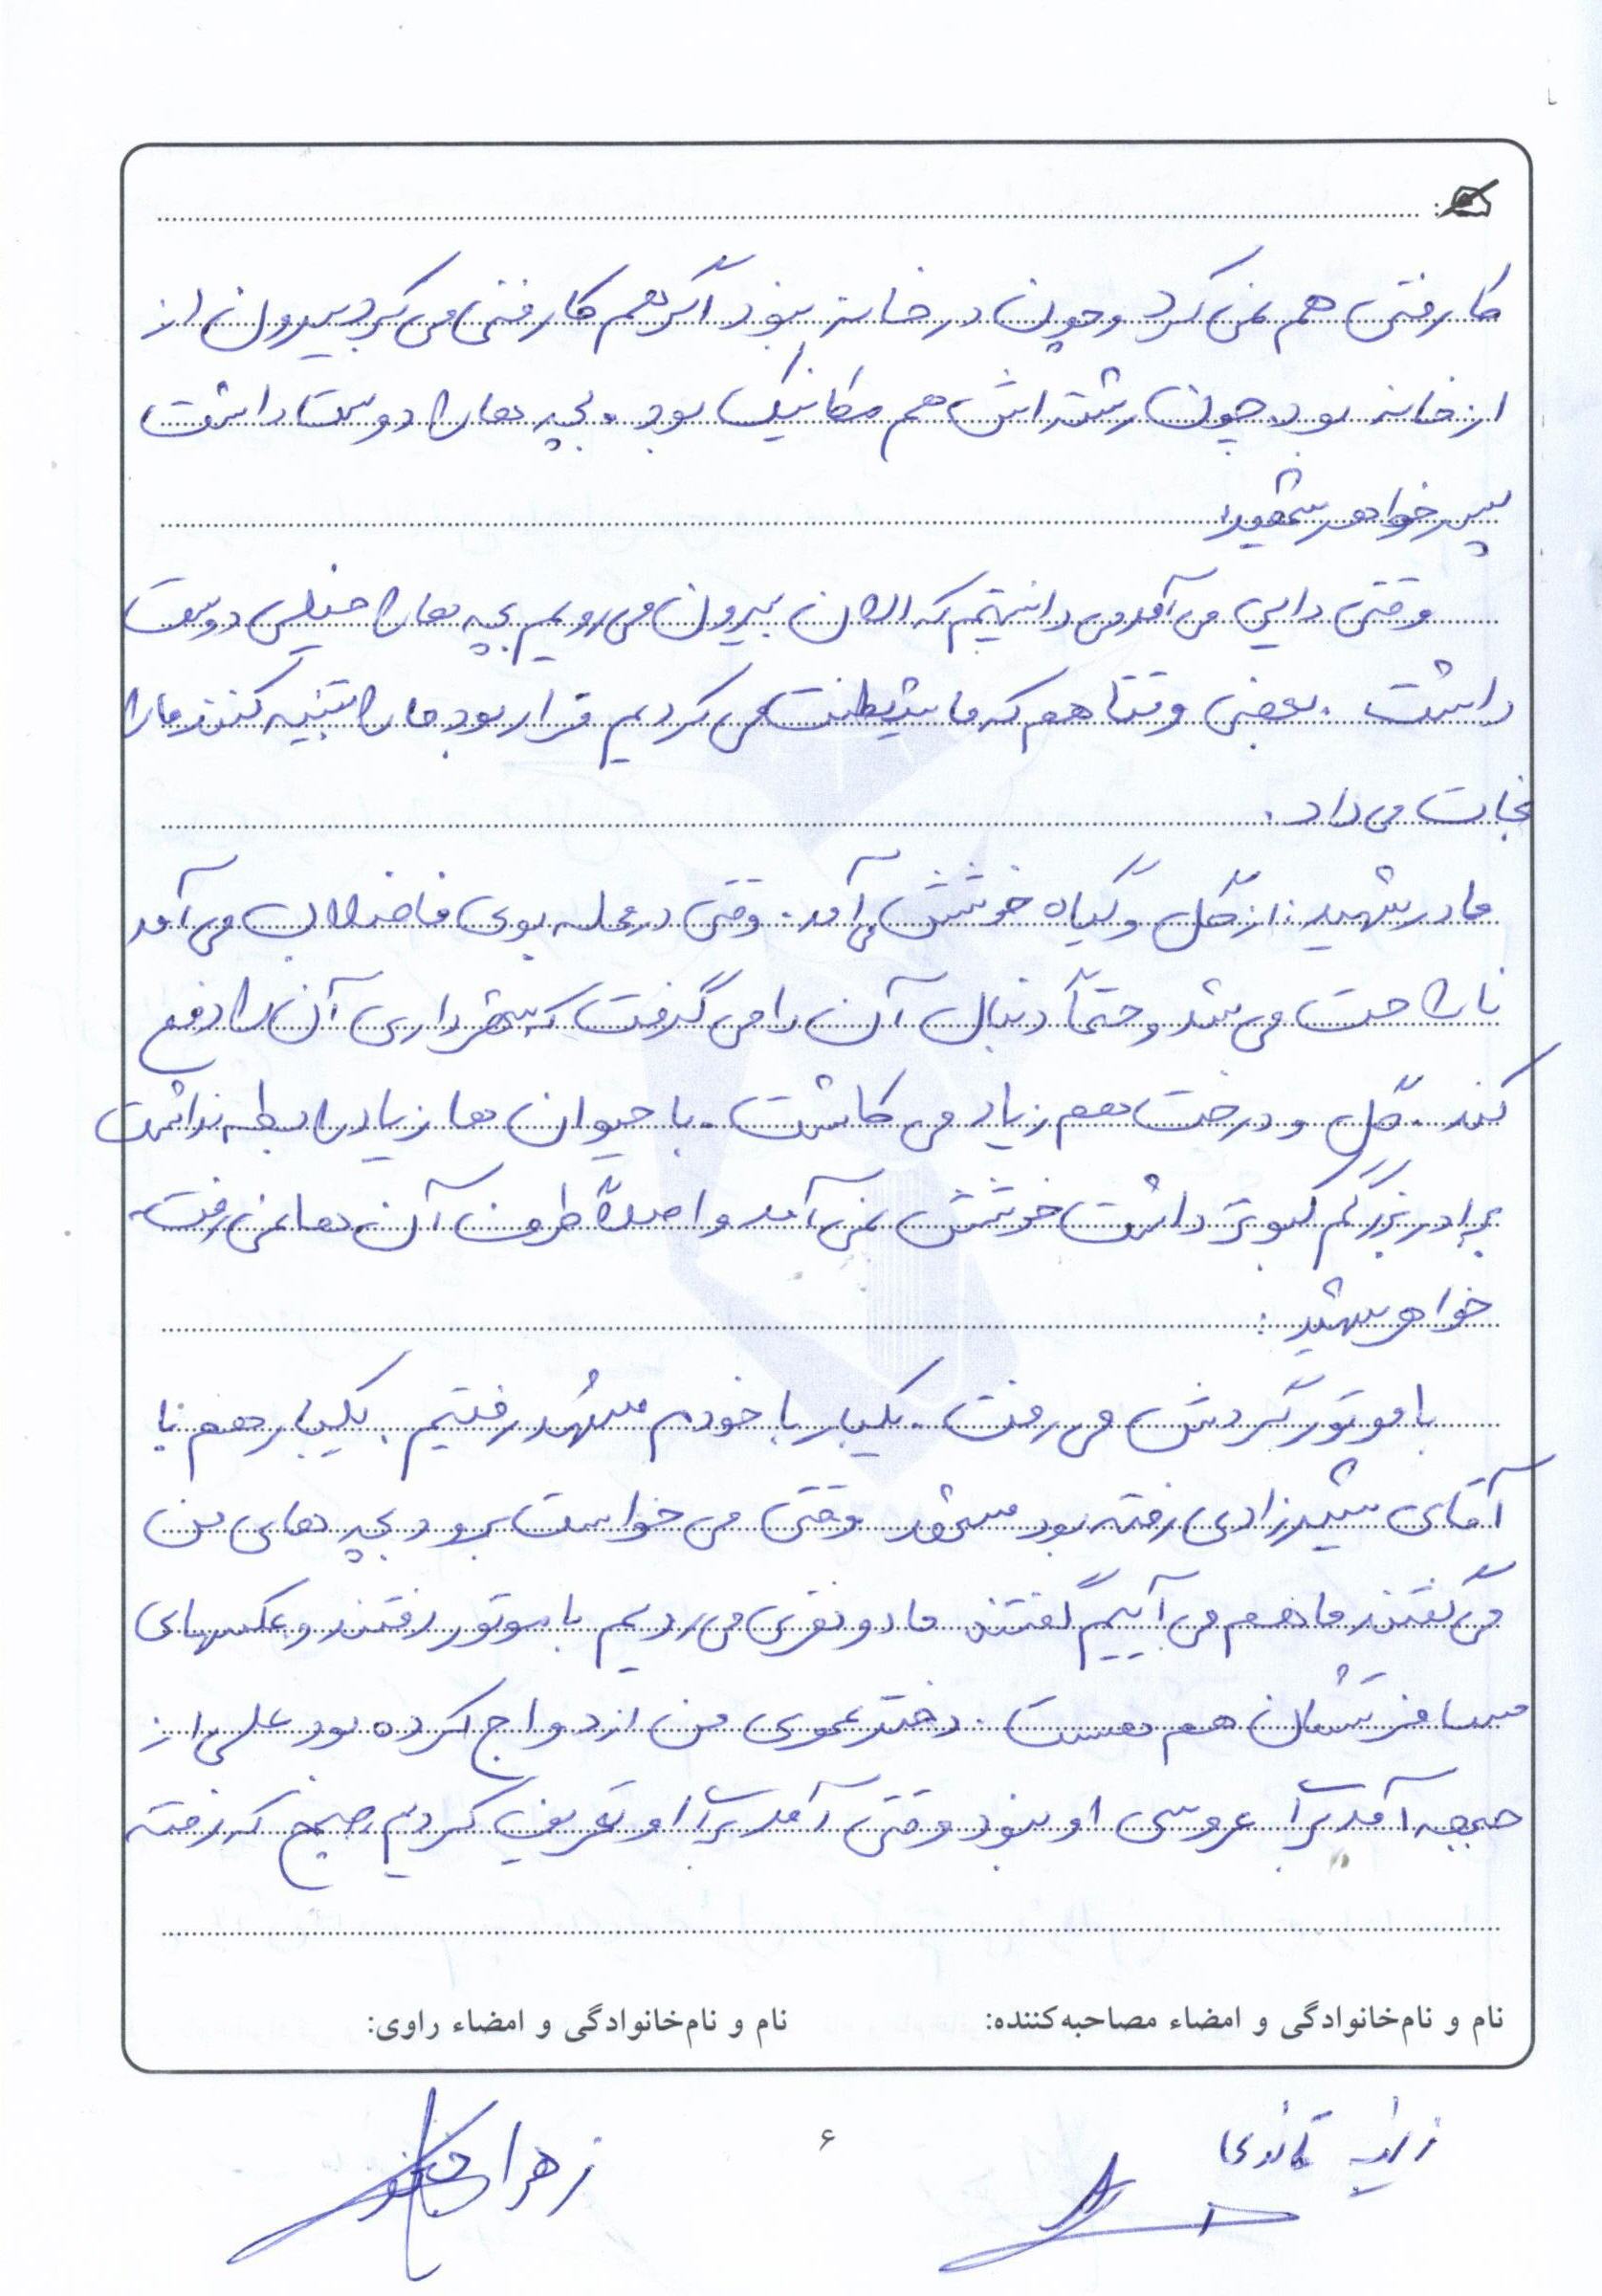 کار فنی هم نمی کرد وچون در خانه نبود اگر هم کار فنی می کرد بیرون از
از خانه بود. چون رشته اش هم مکانیک بود. و بچه ها را دوست داشت
پسر خواهر شهید:
وقتی دایی می آمد می دانستیم که الان بیرون می رویم بچه ها را خیلی دوست
داشت. بعضی وقتا هم که ما شیطنت می کردیم قرار بود ما را تنبیه کنند ما را
نجات می داد.
مادر شهید: از گل و گیاه خوشش می آمد. وقتی در محله بوی فاضلاب می آمد
ناراحت می شد و حتماً دنبال آن را می گرفت که شهرداری آن را دفع
کند. گل و درخت هم زیاد می کاشت. با حیوان ها زیاد رابطه نداشت
برادر بزرگم کبوتر داشت خوشش نمی آمد و اصلاً طرف آن ها نمی رفت.
خواهر شهید:
با موتور گردش می رفت. یکبار با خودم مشهد رفتیم. یکبار هم با
آقای شیرزادی رفته بود مشهد وقتی می خواست برود بچه های من
می گفتند ما هم می آییم گفتند ما دو نفری می رویم با موتور رفتند و عکسهای
مسافرتشان هم هست. دختر عموی من ازدواج کرده بود علی از
جبهه آمد برا عروسی او نبود وقتی آمد برا او تعریف کردیم، صبح که رفته
نام و نام‌خانوادگی و امضاء مصاحبه‌کننده:
نام و نام‌خانوادگی و امضاء راوی:
زهرا
۶